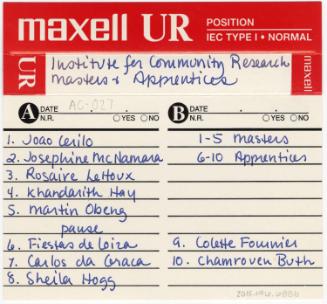 maxell UR POSITION
IEC TYPE I • NORMAL
UR Institute for Community Research maxell
Masters & Apprentices
A DATE AC-027
N.R. YES NO
B DATE
N.R. YES NO
1. Joao Cerilo
2. Josephine McNamara
3. Rosaire Lehoux
4. Khandarith Hay
5. Martin Obeng
pause
6. Fiestas de Loiza
7. Carlos da Graca
8. Sheila Hogg
1-5 Masters
6-10 Apprentices
9. Colette Fournier
10. Chamroven Buth